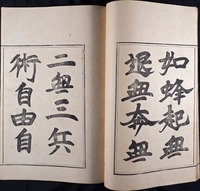 如蜂起無
退無奔無
二無三兵
術自由自